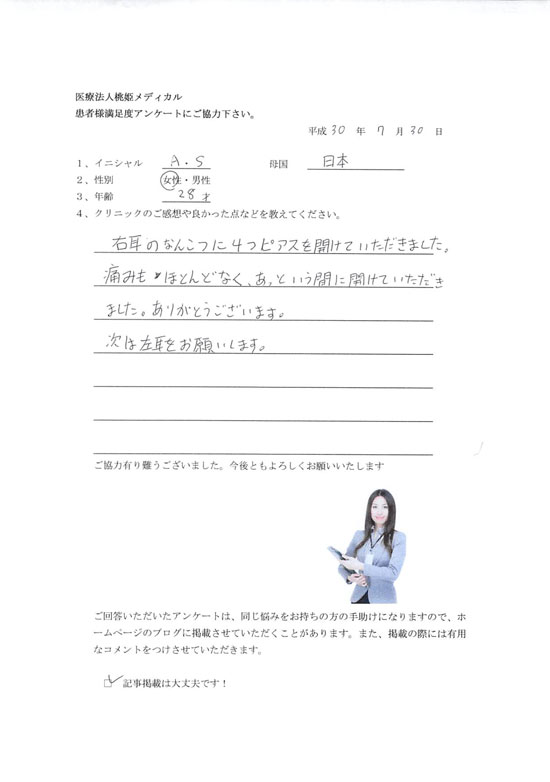 医療法人桃姫メディカル
患者様満足度アンケートにご協力下さい。
平成 30 年 7 月 30 日
1、イニシャル A・S 母国 日本
2、性別 女性・男性
3、年齢 28才
4、クリニックのご感想や良かった点などを教えてください。
右耳のなんこつに4つピアスを開けていただきました。
痛みもほとんどなく、あっという間に開けていただき
ました。ありがとうございます。
次は左耳をお願いします。
ご協力有り難うございました。今後ともよろしくお願いいたします
ご回答いただいたアンケートは、同じ悩みをお持ちの方の手助けになりますので、ホ
ームページのブログに掲載させていただくことがあります。また、掲載の際には有用
なコメントをつけさせていただきます。
記事掲載は大丈夫です！